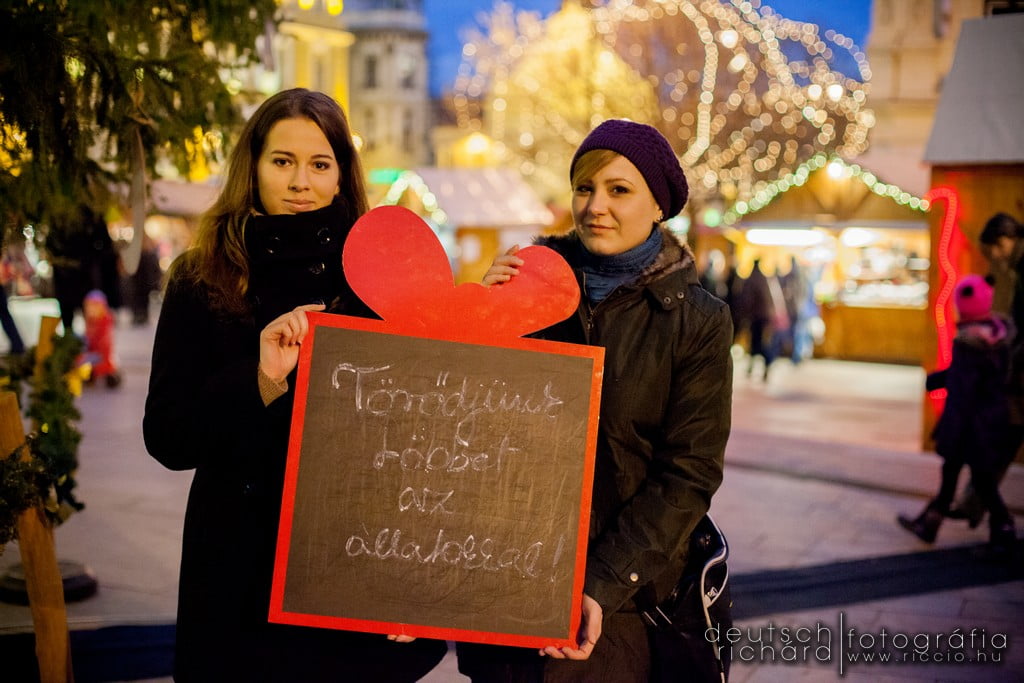 Törődjünk
többet
az
állatokkal!
deutsch fotográfia
richárd www.riccio.hu